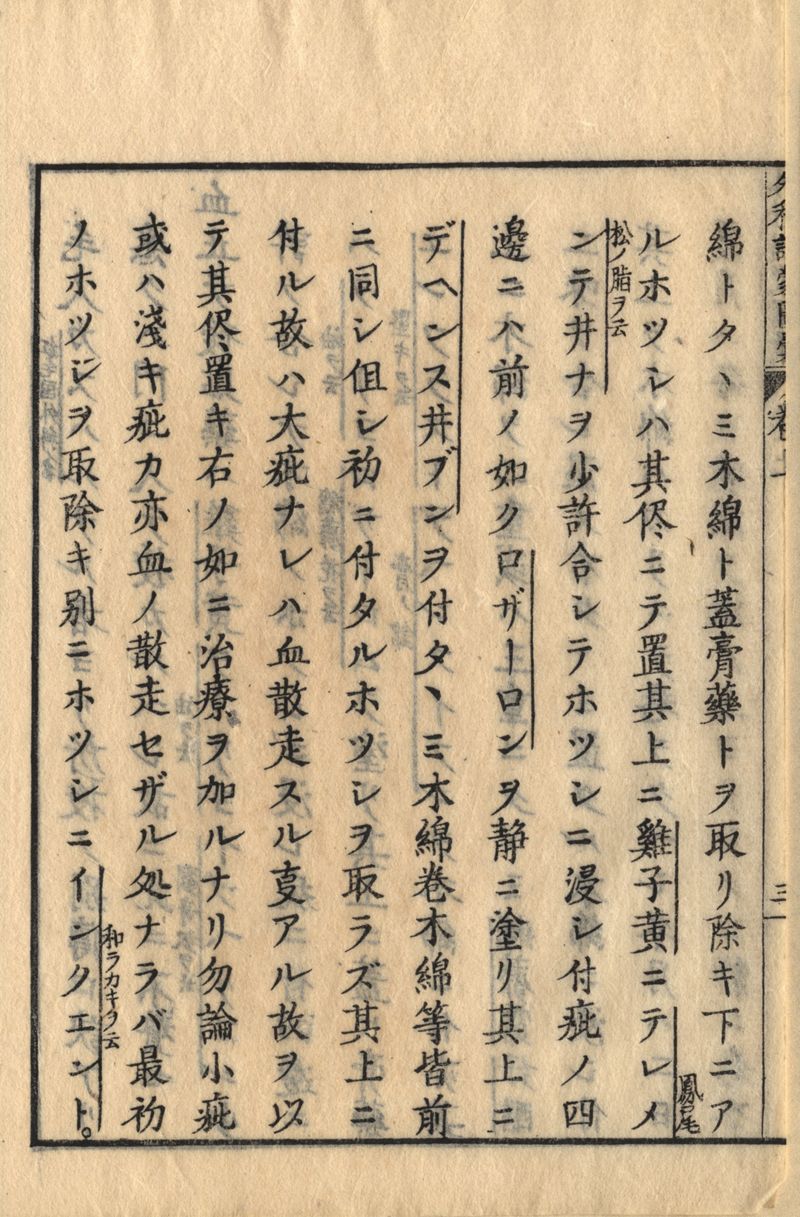 綿トタヽミ木綿ト蓋膏藥トヲ取リ除キ下ニア
ルホツシハ其侭ニテ置其上ニ雞子黄ニテレメ
鳳尾
松ノ脂ヲ云
ンテ井ナヲ少許合シテホツシニ浸シ付疵ノ四
邊ニハ前ノ如クロザーロンヲ静ニ塗リ其上ニ
デヘンス井ブンヲ付タヽミ木綿巻木綿等皆前
ニ同シ但シ初ニ付タルホツシヲ取ラズ其上ニ
付ル故ハ大疵ナレハ血散走スル㕝アル故ヲ以
テ其侭置キ右ノ如ニ治療ヲ加ルナリ勿論小疵
或ハ淺キ疵カ亦血ノ散走セザル処ナラバ最初
ノホツシヲ取除キ別ニホツシニインクエント。
和ラカキヲ云